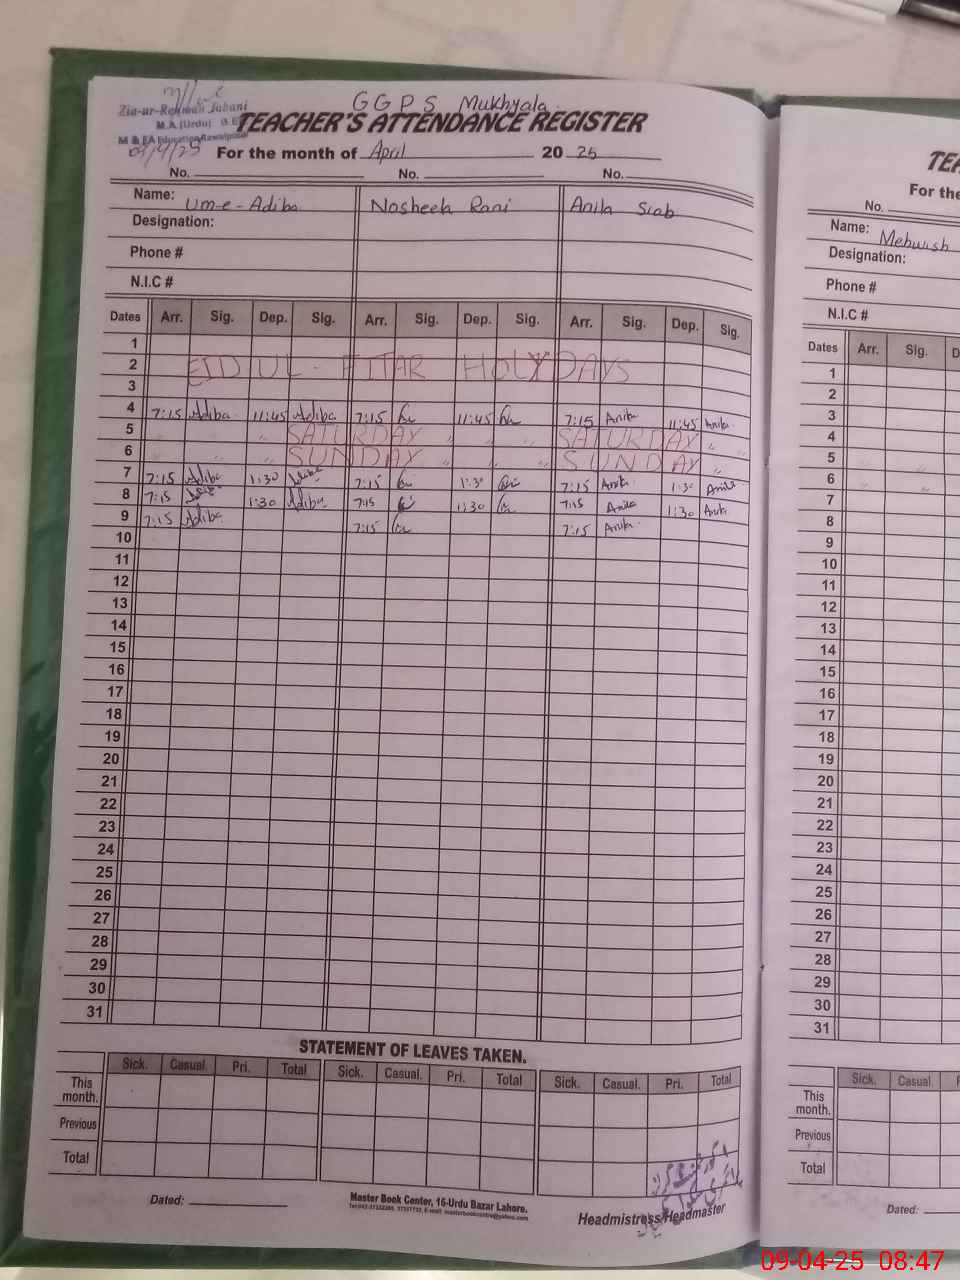 G G P S Mukhyala
Zia-ur-Rehman Jabani
M.A (Urdu) B.E
M & EA Education Rawalpindi
09/4/25
TEACHER'S ATTENDANCE REGISTER
For the month of April 2025
No. No. No.
Name: Um-e-Adiba Nosheen Rani Anila
Designation:
Phone #
N.I.C #
Dates Arr. Sig. Dep. Sig. Arr. Sig. Dep. Sig. Arr. Sig. Dep. Sig.
1
2 EID UL-FITAR HOLYDAYS
3
4 7:15 Adiba 11:45 Adiba 7:15 11:45 7:15 Anila 11:45 Anila
5 " " SATURDAY " " SATURDAY "
6 " " SUNDAY " " " SUNDAY "
7 7:15 Adiba 1:30 Adiba 7:15 1:30 7:15 Anila 1:30 Anila
8 7:15 Adiba 1:30 Adiba 7:15 1:30 7:15 Anila 1:30 Anila
9 7:15 Adiba 7:15 7:15 Anila
10
11
12
13
14
15
16
17
18
19
20
21
22
23
24
25
26
27
28
29
30
31
STATEMENT OF LEAVES TAKEN.
Sick. Casual. Pri. Total Sick. Casual. Pri. Total Sick. Casual. Pri. Total
This month.
Previous
Total
Dated:
Master Book Center, 16-Urdu Bazar Lahore.
Headmistress/Headmaster
TEA
For the
No.
Name: Mehwish
Designation:
Phone #
N.I.C #
Dates Arr. Sig. D
1
2
3
4
5
6
7
8
9
10
11
12
13
14
15
16
17
18
19
20
21
22
23
24
25
26
27
28
29
30
31
Sick. Casual. P
This month.
Previous
Total
Dated:
09-04-25 08:47